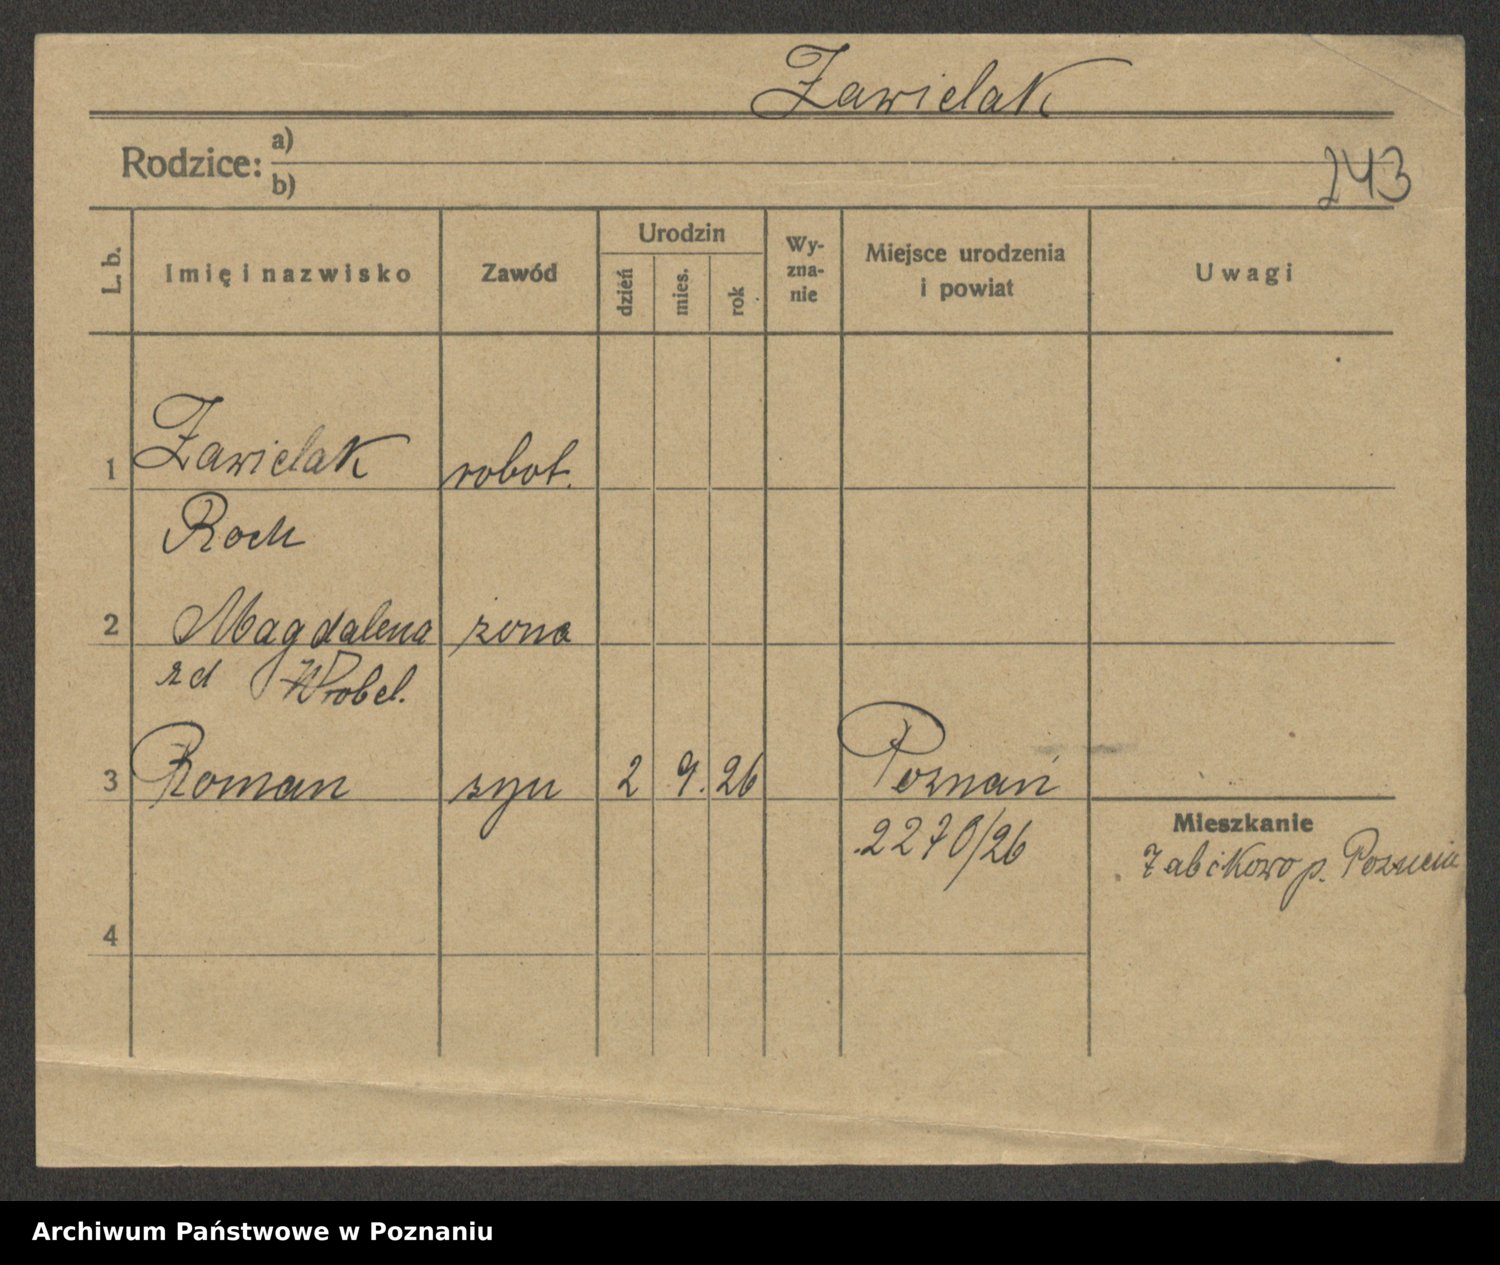 Zawielak
Rodzice: a)
b)
243
L. b.
Imię i nazwisko
Zawód
Urodzin
dzień
mies.
rok
Wy-
zna-
nie
Miejsce urodzenia
i powiat
Uwagi
1 Zawielak robot.
Roch
2 Magdalena żona
zd Wrobel.
3 Roman syn 2 9. 26 Poznań
2270/26
Mieszkanie
Żabikowo p. Poznein
4
Archiwum Państwowe w Poznaniu